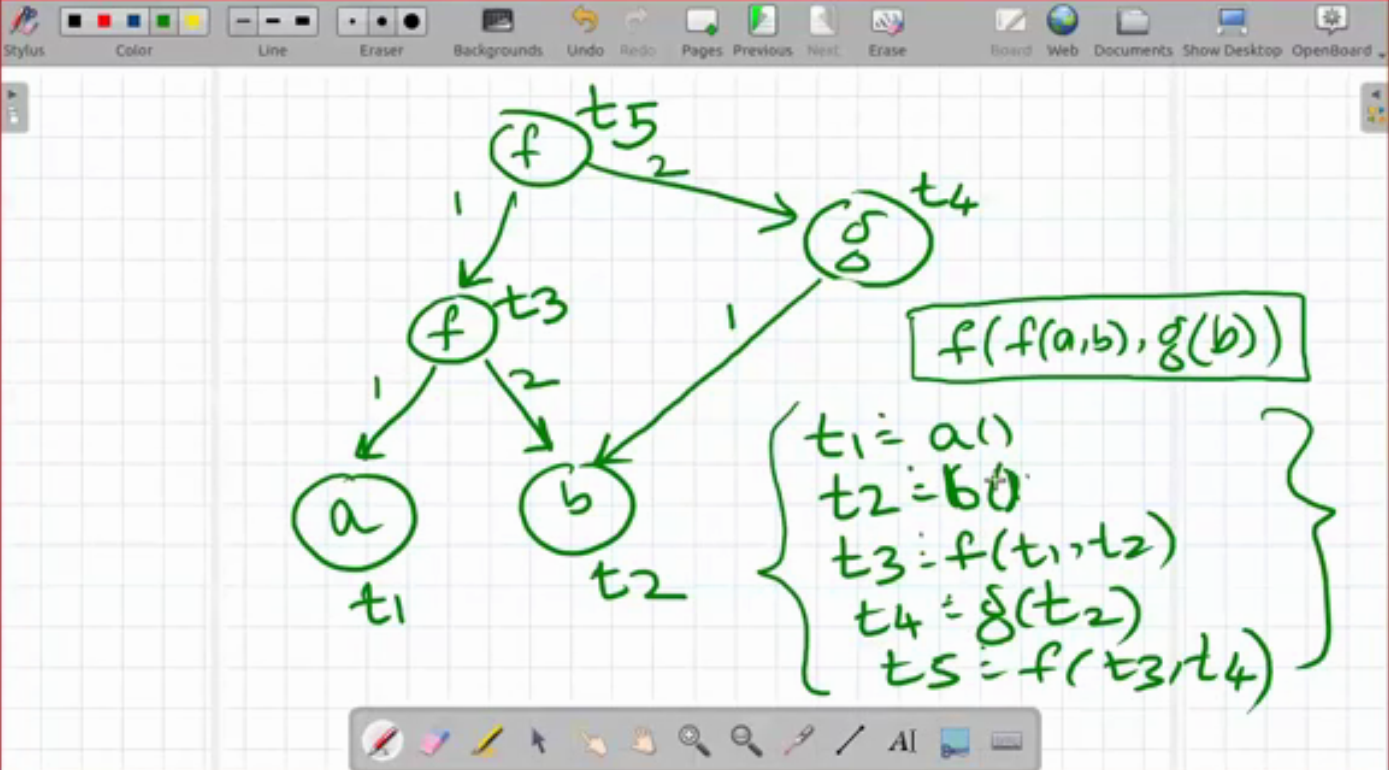 Stylus
Color
Line
Eraser
Backgrounds
Undo
Redo
Pages
Previous
Next
Erase
Board
Web
Documents
Show Desktop
OpenBoard
f t5
1 2
g t4
f t3
1
1 2
f(f(a,b), g(b))
a b
t1 t2
t1 ≐ a()
t2 ≐ b()
t3 ≐ f(t1, t2)
t4 ≐ g(t2)
t5 ≐ f(t3, t4)
AI